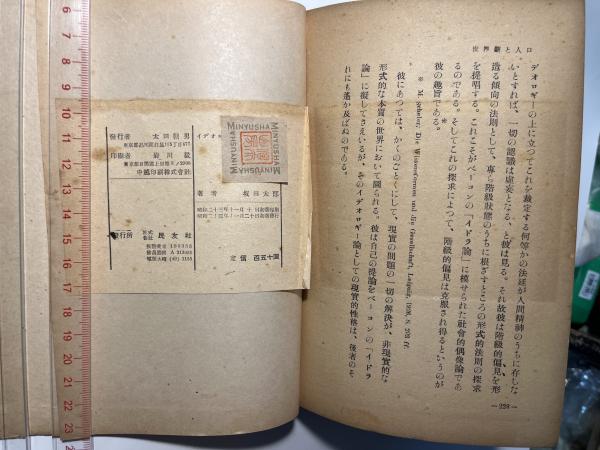 世界觀と人口
デオロギーの上に立つてこれを裁定する何等かの法廷が人間精神のうちに存しな
いとすれば、一切の認識は虛妄となる、と彼は見る。それ故彼は階級的偏見を形
造る傾向の法則として、專ら階級狀態のうちに根ざすところの形式的法則の探求
を提唱する。これこそがベーコンの「イドラ論」に模せられた社會的偶像論であ
るのである。※そしてこれの探求によつて、階級的偏見は克服され得るといふのが
彼の趣旨である。
※ M. Scheler; Die Wissensformen und die Gesellschaft, Leipzig, 1926, S. 203 ff.
彼にあつては、かくのごとくにして、現實の問題の一切の解決が、非現實的な
形式的な本質の世界において圖られる。彼は自己の提論をベーコンの「イドラ
論」に擬してさえいるが、そのイデオロギー論としての現實的性格は、後者のそ
れにも遙か及ばぬのである。
—229—
イデオ
著者 坂田太郎
昭和二十三年十一月十日初版印刷
昭和二十三年十一月二十日初版發行
定價 百五十圓
發行者
印刷者
中越印刷株式會社
發行所 株式會社 民友社
MINYUSHA
MINYUSHA
MINYUSHA
MINYUSHA
6
7
8
9
10
11
12
13
14
15
16
17
18
19
20
21
22
23